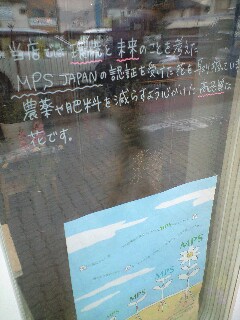 当店では環境と未来のことを考えた
MPS JAPANの認証を受けた花を取り扱ってい
農薬や肥料を減らすよう心がけた高品質な
花です。
MPS
MPS
MPS